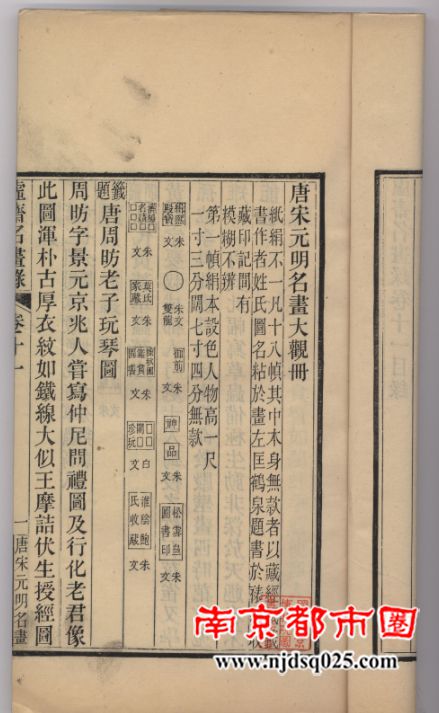 唐宋元明名畫大觀冊
紙絹不一凡十八幀其中本身無款者以藏經
書作者姓氏圖名粘於畫左匡鶴泉題書於
藏印記間有
模糊不辨
第一幀絹本設色人物高一尺
一寸三分闊七寸四分無款
朱文
朱文
雙龍
御前
朱文
神品
朱文
松雪齋
圖書印
朱文
朱文
朱文
白文
珍玩
淮陰鮑
氏收藏
朱文
籤題
唐周昉老子玩琴圖
周昉字景元京兆人嘗寫仲尼問禮圖及行化老君像
此圖渾朴古厚衣紋如鐵線大似王摩詰伏生授經圖
虛齋名畫錄
卷十一
一
唐宋元明名畫
南京都市圈
www.njdsq025.com